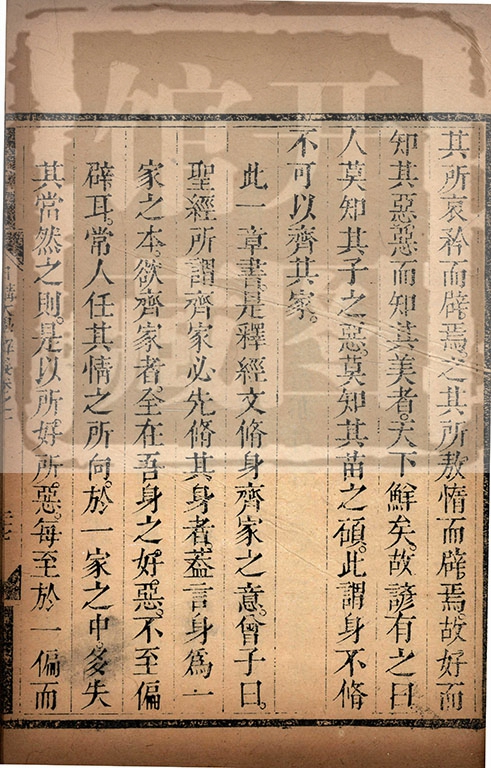 其所哀矜而辟焉。之其所敖惰而辟焉。故好而
知其惡惡而知其美者。天下鮮矣。故諺有之曰
人莫知其子之惡。莫知其苗之碩。此謂身不脩
不可以齊其家。
此一章書是釋經文脩身齊家之意。曾子曰。
聖經所謂齊家必先脩其身者。蓋言身爲一
家之本。欲齊家者。全在吾身之好。惡。不至偏
辟耳。常人任其情之所向。於一家之中。多失
其當然之則。是以所。好所。惡。每至於一偏而